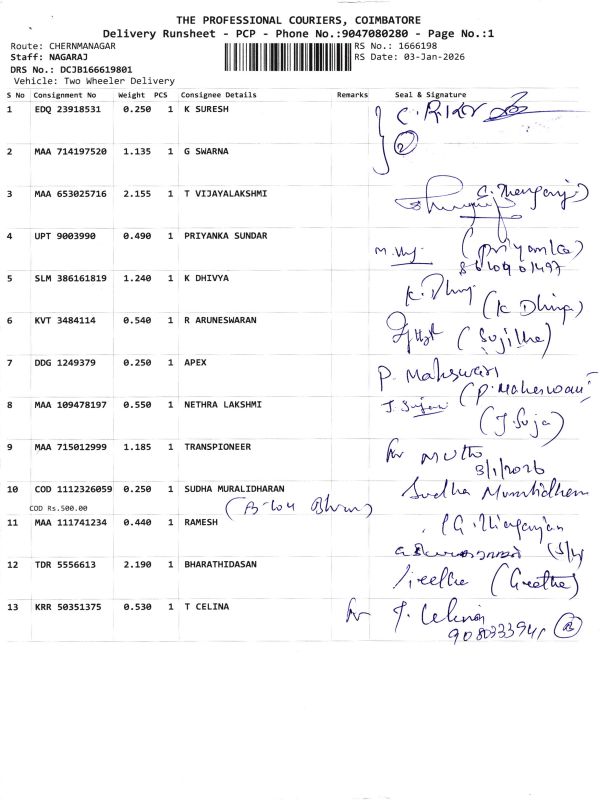 THE PROFESSIONAL COURIERS, COIMBATORE
Delivery Runsheet - PCP - Phone No.:9047080280 - Page No.:1
Route: CHERNMANAGAR
Staff: NAGARAJ
DRS No.: DCJB166619801
Vehicle: Two Wheeler Delivery
RS No.: 1666198
RS Date: 03-Jan-2026
S No Consignment No Weight PCS Consignee Details Remarks Seal & Signature
1 EDQ 23918531 0.250 1 K SURESH
2 MAA 714197520 1.135 1 G SWARNA
3 MAA 653025716 2.155 1 T VIJAYALAKSHMI
4 UPT 9003990 0.490 1 PRIYANKA SUNDAR (Priyanka)
5 SLM 386161819 1.240 1 K DHIVYA
6 KVT 3484114 0.540 1 R ARUNESWARAN
7 DDG 1249379 0.250 1 APEX P. Maheswari (P. Maheswari)
8 MAA 109478197 0.550 1 NETHRA LAKSHMI (J. Suja)
9 MAA 715012999 1.185 1 TRANSPIONEER
3/1/2026
10 COD 1112326059 0.250 1 SUDHA MURALIDHARAN Sudha Muralidharan
COD Rs.500.00
11 MAA 111741234 0.440 1 RAMESH
12 TDR 5556613 2.190 1 BHARATHIDASAN (Geetha)
13 KRR 50351375 0.530 1 T CELINA for T. Celina